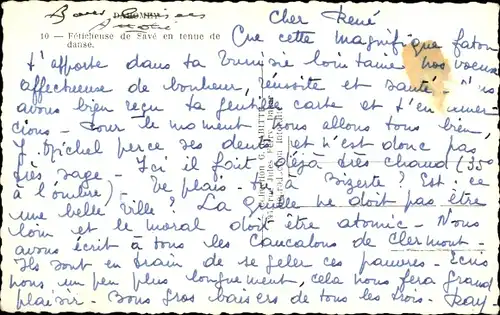 Bons Baisers
DAHOMEY
10 — Féticheuse de Savé en tenue de
danse.
Cher René
Que cette magnifique fatou
t'apporte dans ta Tunisie lointaine nos voeux
affectueux de bonheur, réussite et santé - n/s
avons bien reçu ta gentille carte et t'en remer
cions - Pour le moment nous allons tous bien,
J. Michel perce ses dents et n'est donc pas
très sage - Ici il fait déjà très chaud (35°
à l'ombre) - Te plais-tu à Bizerte ? Est-ce
une belle ville ? La quille ne doit pas être
loin et le moral doit être atomic - Nous
avons écrit à tous les Cancalons de Clermont -
Ils sont en train de se geler ces pauvres - Ecris
nous un peu plus longuement, cela nous fera grand
plaisir - Bons gros baisers de tous les trois - Ray.